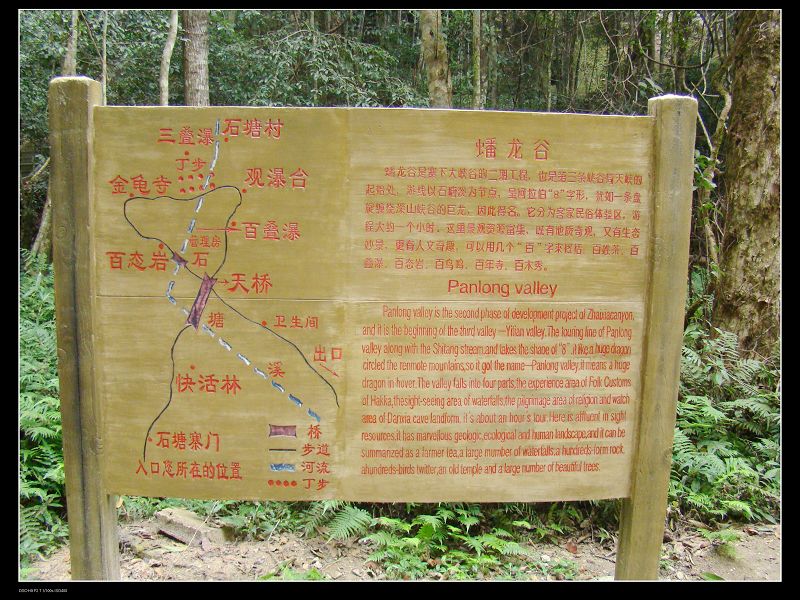 三叠瀑
石塘村
丁步
金龟寺
观瀑台
百叠瀑
管理房
百态岩
石
天桥
塘
卫生间
出口
溪
快活林
石塘寨门
入口您所在的位置
桥
步道
河流
丁步
蟠龙谷
蟠龙谷是寨下大峡谷的二期工程，也是第三条峡谷倚天峡的
起始处，游线以石塘溪为节点，呈阿拉伯“8”字形，犹如一条盘
旋缠绕深山峡谷的巨龙，因此得名。它分为客家民俗体验区，游
程大约一个小时，这里景观资源富集，既有地质奇观，又有生态
妙景，更有人文奇趣，可以用几个“百”字来概括：百姓茶、百
叠瀑、百态岩、百鸟鸣、百年寺、百木秀。
Panlong valley
Panlong valley is the second phase of development project of Zhaixiacanyon,
and it is the beginning of the third valley—Yitian valley.The touring line of Panlong
valley along with the Shitang stream,and takes the shape of "8" ,it like a huge dragon
circled the renmote mountains,so it got the name—Panlong valley,it means a huge
dragon in hover.The valley falls into four parts,the experience area of Folk Customs
of Hakka,thesight-seeing area of waterfalls,the pilgrimage area of religion and watch
area of Danxia cave landform. It's about an hour's tour.Here is affluent in sight
resources,it has marvellous geologic,ecological and human landscape,and it can be
summarized as a farmer tea,a large number of waterfalls,a hundreds-form rock,
ahundreds-birds twitter,an old temple and a large number of beautiful trees.